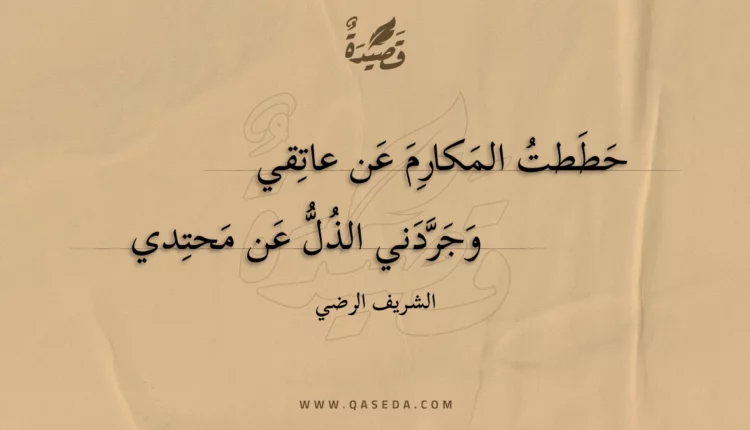 قَصِيْدَةٌ
حَطَطتُ المَكارِمَ عَن عاتِقي
وَجَرَّدَني الذُلُّ عَن مَحتِدي
الشريف الرضي
WWW.QASEDA.COM